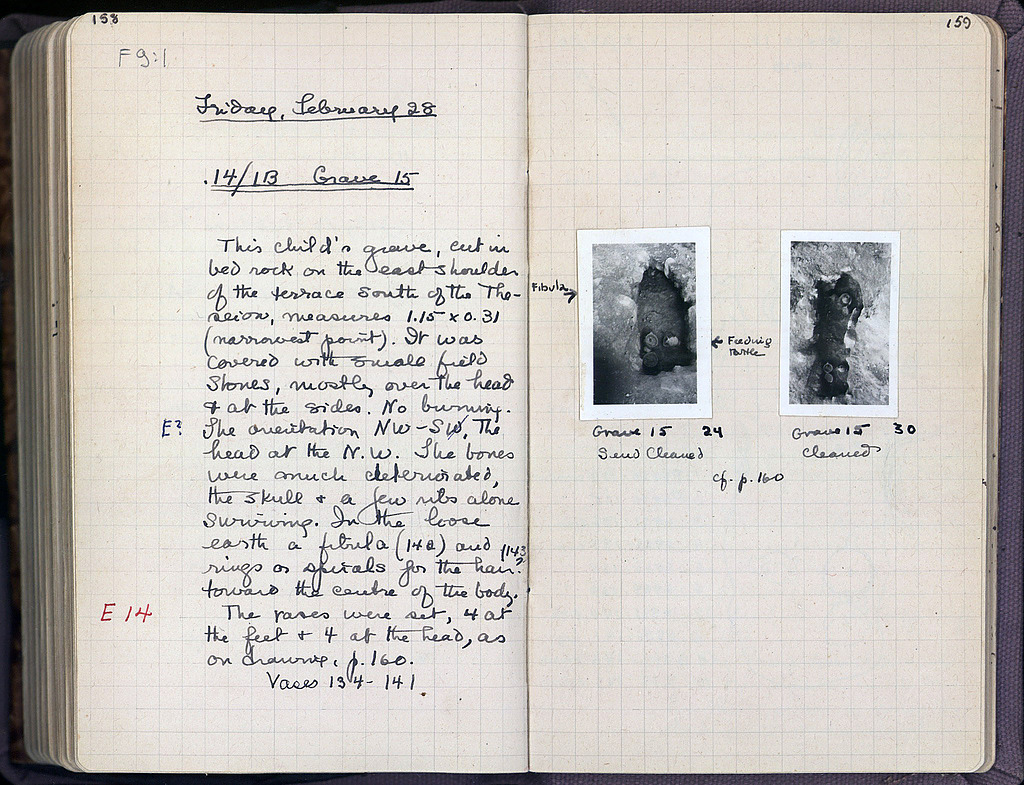 158
F 9:1
Friday, February 28
.14/1B Grave 15
This child's grave, cut in
bed rock on the east shoulder
of the terrace south of the The-
seion, measures 1.15 x 0.31
(narrowest point). It was
covered with small field
stones, mostly over the head
& at the sides. No burning.
E? The orientation NW-SW, the
head at the N.W. The bones
were much deteriorated,
the skull & a few ribs alone
surviving. In the loose
earth a fibula (142) and
(143
rings or spirals for the hair?
toward the centre of the body.
E 14
The vases were set, 4 at
the feet & 4 at the head, as
on drawing, p. 160.
Vases 134-141.
159
Fibula
Feeding
Bottle
Grave 15 24
Semi Cleaned
Grave 15 30
Cleaned
cf. p. 160